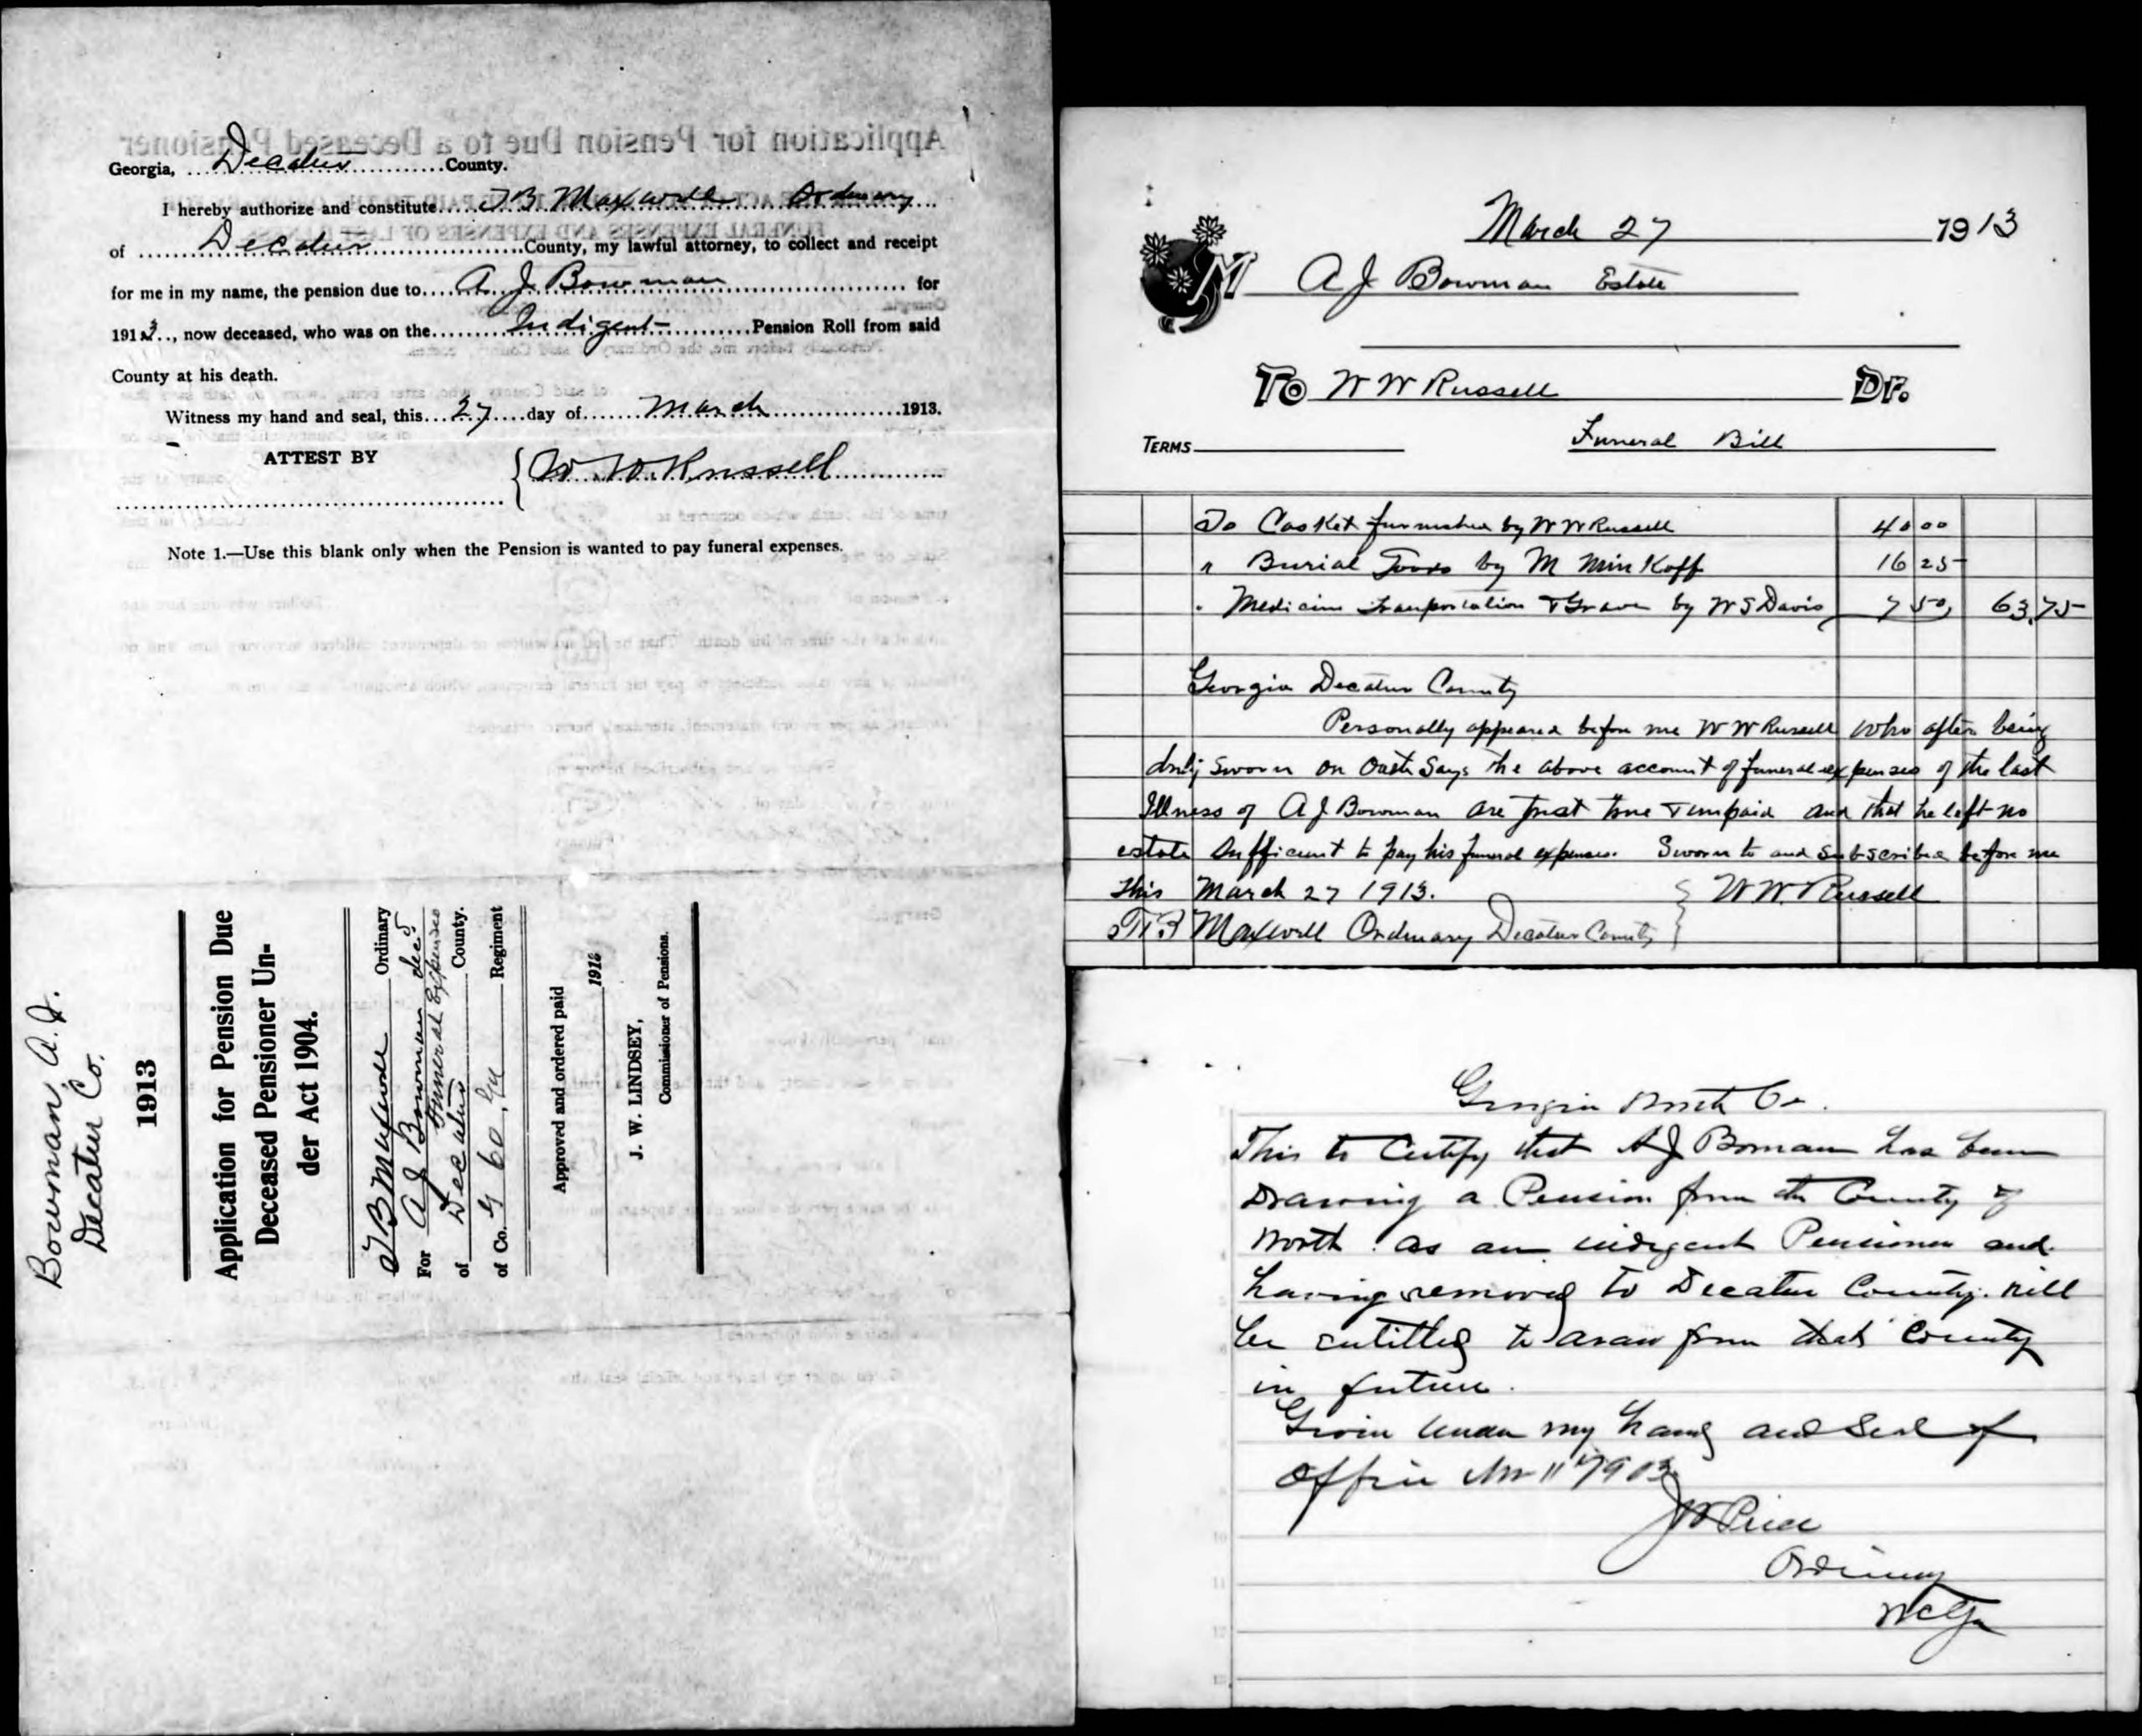 Georgia, Decatur County.
I hereby authorize and constitute T B Maxwell Ordinary
of Decatur County, my lawful attorney, to collect and receipt
for me in my name, the pension due to A. J. Bowman for
1913, now deceased, who was on the Indigent Pension Roll from said
County at his death.
Witness my hand and seal, this 27 day of March 1913.
ATTEST BY
W. W. Russell
Note 1.—Use this blank only when the Pension is wanted to pay funeral expenses.
Bowman, A. J.
Decatur Co.
1913
Application for Pension Due
Deceased Pensioner Un-
der Act 1904.
T B Maxwell Ordinary
For A J Bowman dec'd
Funeral Expenses
of Decatur County.
of Co. G 60, Ga Regiment
Approved and ordered paid
191
J. W. LINDSEY,
Commissioner of Pensions.
March 27 1913
M A J Bowman Estate
To W W Russell Dr.
TERMS Funeral Bill
To Casket furnished by W W Russell 40 00
" Burial Goods by M Minkoff 16 25
" Medicine Transportation & Grave by W S Davis 7 50, 63.75
Georgia Decatur County
Personally appeared before me W W Russell who after being
duly sworn on Oath Says the above account of funeral expenses of the last
Illness of A J Bowman are just true & unpaid and that he left no
estate Sufficient to pay his funeral expenses. Sworn to and Subscribed before me
this March 27 1913. W W. Russell
T B Maxwell Ordinary Decatur County
Georgia Worth Co.
This to Certify that A J Boman has been
Drawing a Pension from the County of
Worth as an indigent Pensioner and
having removed to Decatur County. will
be entitled to draw from that County
in future.
Given under my hand and Seal of
Office 11 1903
J W Price
Ordinary
W C Ga